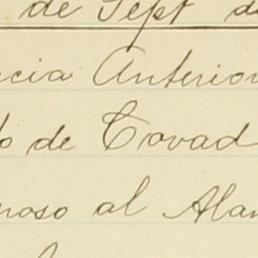 de Sept de
ncia Anterior
do de Tovad
noso al Alam